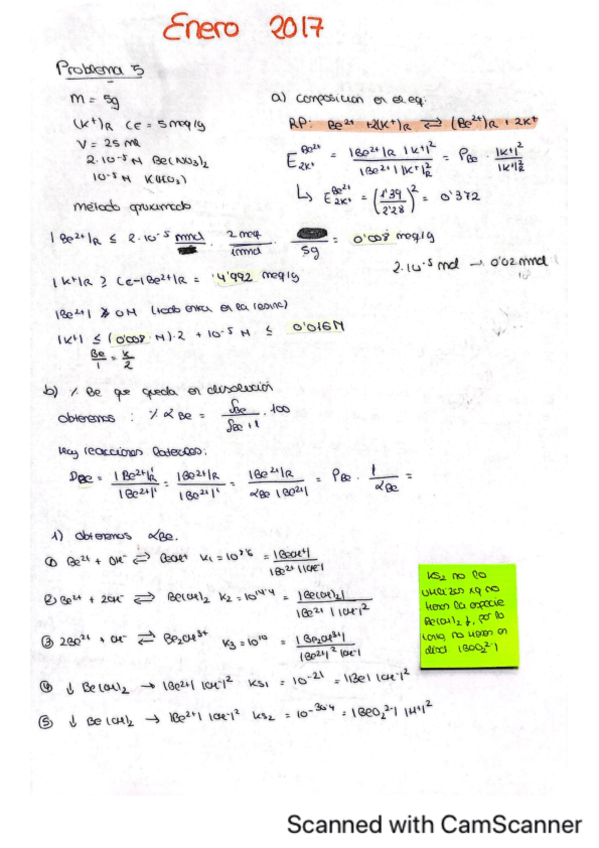 Enero 2017
Problema 5
m = 5g
(K+)R CE = 5 meq/g
V = 25 mL
2·10⁻⁵ M Be(NO3)2
10⁻⁵ M K(NO3)
método aproximado
a) composicion en el eq:
RP: Be²⁺ + 2(K⁺)R ⇌ (Be²⁺)R + 2K⁺
E Be²⁺ 2K⁺ = |Be²⁺|R |K⁺|² / |Be²⁺| |K⁺|²R = PBe · |K⁺|² / |K⁺|²R
↳ E Be²⁺ 2K⁺ = (1'39 / 2'28)² = 0'372
|Be²⁺|R ≤ 2·10⁻⁵ mmol · 2 meq / 1 mmol · / 5g = 0'008 meq/g
2·10⁻⁵ mol → 0'02 mmol
|K⁺|R ≥ CE - |Be²⁺|R = 4'992 meq/g
|Be²⁺| ≥ 0 M (todo entra en la resina)
|K⁺| ≤ (0'008 M)·2 + 10⁻⁵ M ≤ 0'016 M
Be / 1 = K / 2
b) % Be que queda en disolución
obtenemos : % αBe = δBe / δBe + 1 · 100
Hay reacciones laterales:
DBe = |Be²⁺|'R / |Be²⁺|' = |Be²⁺|R / |Be²⁺|' = |Be²⁺|R / αBe |Be²⁺| = PBe · 1 / αBe =
1) obtenemos αBe.
① Be²⁺ + OH⁻ ⇌ BeOH⁺ K1 = = |BeOH⁺| / |Be²⁺| |OH⁻|
② Be²⁺ + 2OH⁻ ⇌ Be(OH)2 K2 = 10¹⁴'⁴ = |Be(OH)2| / |Be²⁺| |OH⁻|²
③ 2Be²⁺ + OH⁻ ⇌ Be2OH³⁺ K3 = 10¹⁰ = |Be2OH³⁺| / |Be²⁺|² |OH⁻|
④ ↓ Be(OH)2 → |Be²⁺| |OH⁻|² KS1 = 10⁻²¹ = |Be| |OH⁻|²
⑤ ↓ Be(OH)2 → |Be²⁺| |OH⁻|² KS2 = 10⁻³⁰'⁴ = |BeO2²⁻| |H⁺|²
KS2 no lo
utilizas xq no
tienes la especie
Be(OH)2 ↓, por lo
tanto, no tienes en
disol |BeO2²⁻|
Scanned with CamScanner